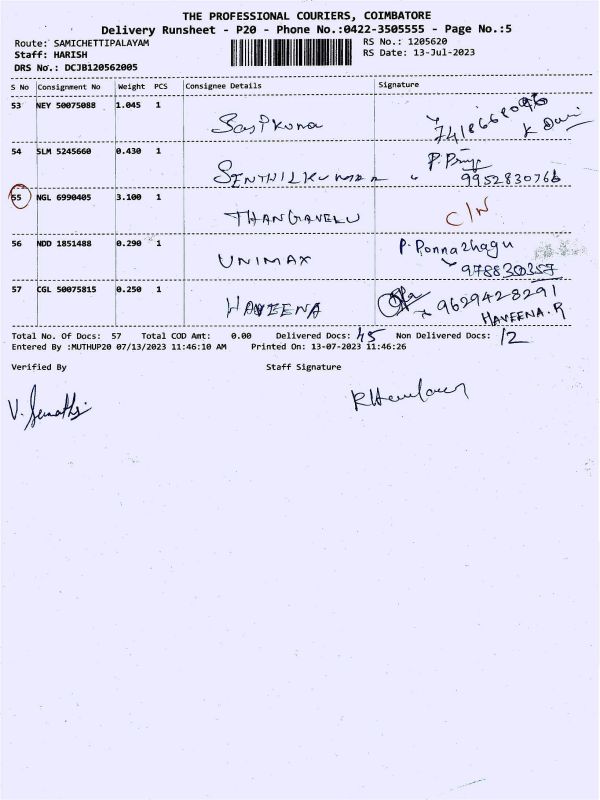 THE PROFESSIONAL COURIERS, COIMBATORE
Delivery Runsheet - P20 - Phone No.:0422-3505555 - Page No.:5
Route: SAMICHETTIPALAYAM RS No.: 1205620
Staff: HARISH RS Date: 13-Jul-2023
DRS No.: DCJB120562005
S No Consignment No Weight PCS Consignee Details Signature
53 NEY 50075088 1.045 1
7418668096
54 SLM 5245660 0.430 1
SENTHILKUMAR 9952830766
55 NGL 6990405 3.100 1
THANGAVELU C/N
56 NDD 1851488 0.290 1 P. Ponnazhagu
UNIMAX
57 CGL 50075815 0.250 1
HAVEENA 9629428291
HAVEENA.R
Total No. Of Docs: 57 Total COD Amt: 0.00 Delivered Docs: 45 Non Delivered Docs: 12
Entered By :MUTHUP20 07/13/2023 11:46:10 AM Printed On: 13-07-2023 11:46:26
Verified By Staff Signature